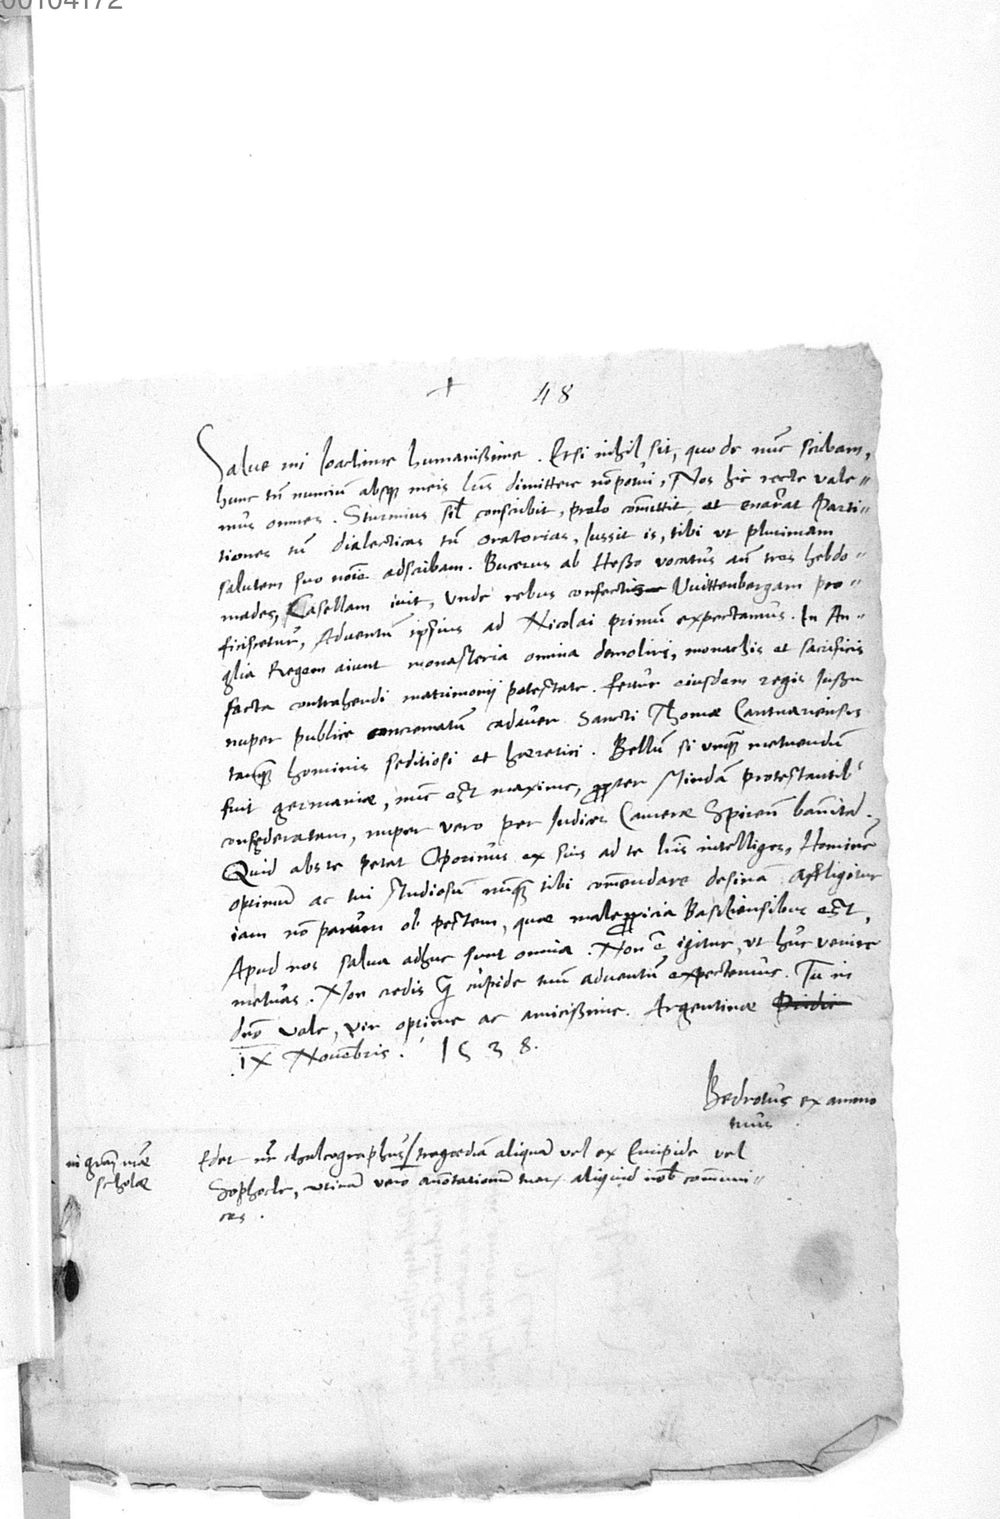 00104172
+ 48
Salue mi Ioachime humanissime. Etsi nihil sit, quo de nūc scribam,
hunc tñ nunciū absq meis lr̄is dimittere nō potui, Nos hic recte vale=
mus omnes. Sturmius sil conscribit, prelo com̄ittit, et enarrat Parti=
tiones tū dialecticas tū oratorias, Iussit is, tibi vt plurimam
salutem suo noīe adscribam. Bucerus ab Hesso vocatus an̄ tres hebdo=
mades, Casellam iuit, vnde rebus confectis Vuittenbergam pro=
ficiscetur, Aduentū ipsius ad Nicolai primū expectamus. In An=
glia Regem aiunt monasteria omnia demoliri, monachis et sacrificis
facta contrahendi matrimonij potestate. fertur eiusdem regis Iussu
nuper publice concrematū cadauer Sancti Thomæ Cantuariensis
tanq hominis seditiosi et hæretici. Bellū si vnq metuendū
fuit germaniæ, nūc est maxime, propter Mindā protestantib
confederatam, nuper vero per Iudices Cameræ Spiren̄ bannitā.
Quid abs te petat Oporinus ex suis ad te lr̄is intelliges, Hominē
optimū ac tui studiosū nūq tibi com̄endare desinā affligitur
iam nō parum ob pestem, quæ male propicia Basiliensibus est,
Apud nos salua adhuc sunt omnia. Non ē igitur, vt huc venire
metuas. Non credis q̄ cupide tuū aduentū expectemus. Tu in
dn̄o vale, vir optime ac amicissime. Argentinæ Pridie
IX Nouēbris. 1538.
Bedrotus ex animo
tuus
Edet nr̄ chalcographus / tragœdiā aliquā vel ex Euripide vel
in gratiā nr̄æ
scholæ
Sophocle, vtinā vero annotationū tuarū aliquid nob com̄uni=
ces.